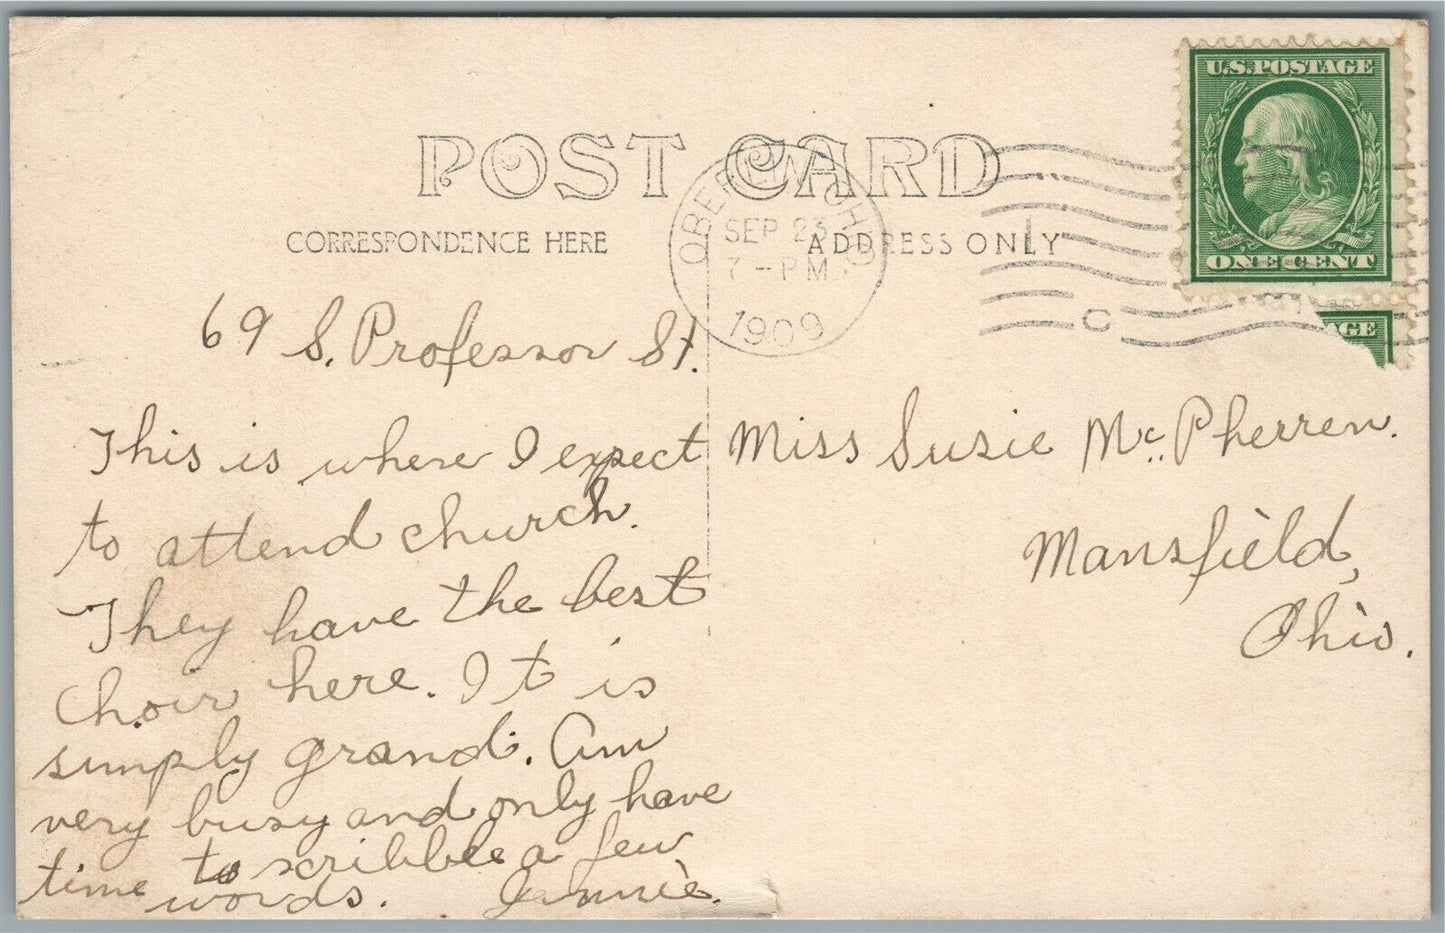 U.S. POSTAGE
ONE CENT
AGE
POST CARD
CORRESPONDENCE HERE
ADDRESS ONLY
OBERLIN OHIO
SEP 23
7 - PM
1909
C
69 S. Professor St.
This is where I expect
to attend church.
They have the best
choir here. It is
simply grand. Am
very busy and only have
time to scribble a few
words. Jennie.
Miss Susie McPherren.
Mansfield,
Ohio.